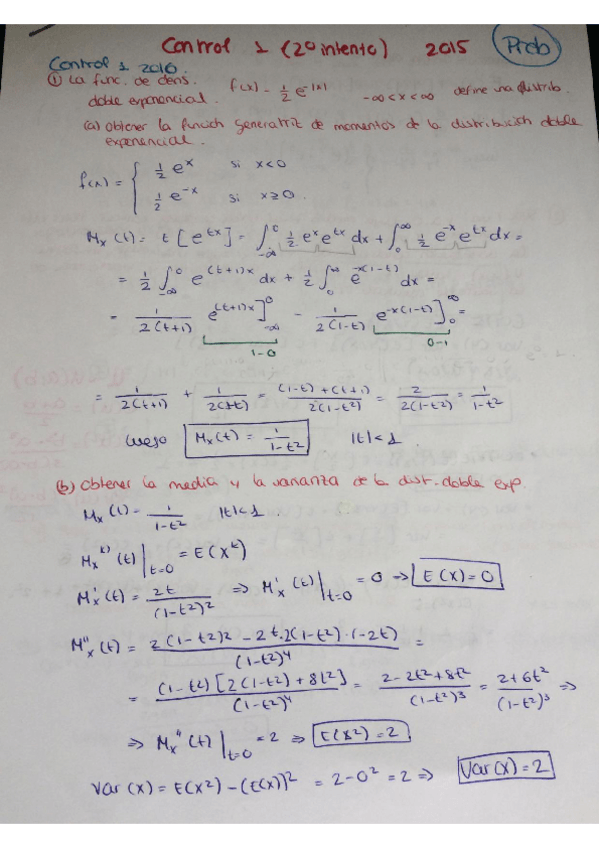 Control 1 (2º intento) 2015 Prob
Control 1 2016.
① La func. de dens. f(x) = 1/2 e^-|x| -∞<x<∞ define una distrib.
doble exponencial.
(a) obtener la función generatriz de momentos de la distribución doble
exponencial.
f(x) = { 1/2 e^x si x<0
1/2 e^-x si x≥0.
M_x(t) = E[e^tx] = ∫_-∞^0 1/2 e^x e^tx dx + ∫_0^∞ 1/2 e^-x e^tx dx =
= 1/2 ∫_-∞^0 e^(t+1)x dx + 1/2 ∫_0^∞ e^-x(1-t) dx =
= 1/2(t+1) e^(t+1)x ]_-∞^0 - 1/2(1-t) e^-x(1-t) ]_0^∞ =
1-0 0-1
= 1/2(t+1) + 1/2(1-t) = (1-t)+(t+1)/2(1-t²) = 2/2(1-t²) = 1/1-t²
Luego M_x(t) = 1/1-t² |t|<1.
(b) Obtener la media y la varianza de la dist. doble exp.
M_x(t) = 1/1-t² |t|<1.
M_x^k)(t)|_t=0 = E(X^k)
M'_x(t) = 2t/(1-t²)² ⇒ M'_x(t)|_t=0 = 0 ⇒ E(X)=0
M''_x(t) = 2(1-t²)² - 2t·2(1-t²)·(-2t)/(1-t²)^4 =
= (1-t²)[2(1-t²)+8t²]/(1-t²)^4 = 2-2t²+8t²/(1-t²)³ = 2+6t²/(1-t²)³ ⇒
⇒ M_x''(t)|_t=0 = 2 ⇒ E(X²)=2
Var(X) = E(X²) - (E(X))² = 2-0² = 2 ⇒ Var(X)=2